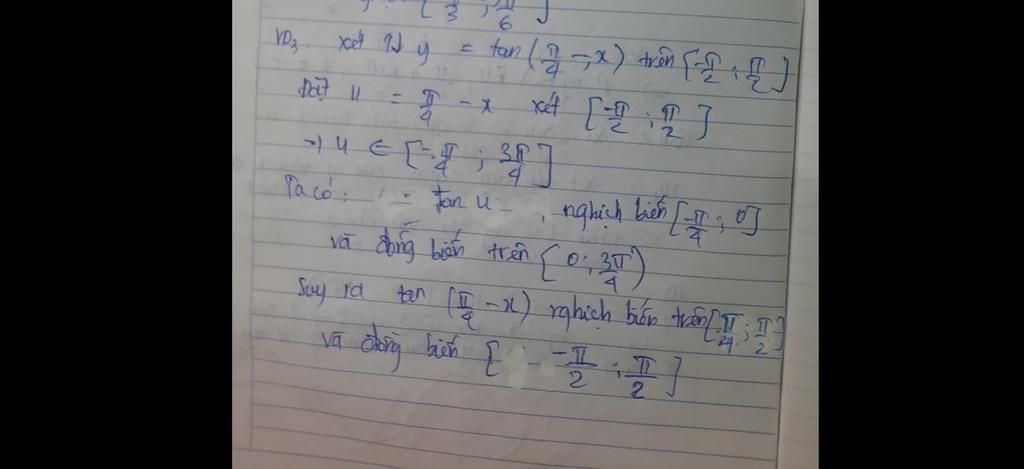 [π/3 ; π/6]
VD3. xét hs y = tan(π/4 - x) trên [-π/2 ; π/2]
Đặt u = π/4 - x xét [-π/2 ; π/2]
→ u ∈ [-π/4 ; 3π/4]
Ta có: = tan u , nghịch biến [-π/4 ; 0]
và đồng biến trên [0 ; 3π/4)
Suy ra tan (π/4 - x) nghịch biến trên [π/4 ; π/2]
và đồng biến [ -π/2 ; π/2 ]